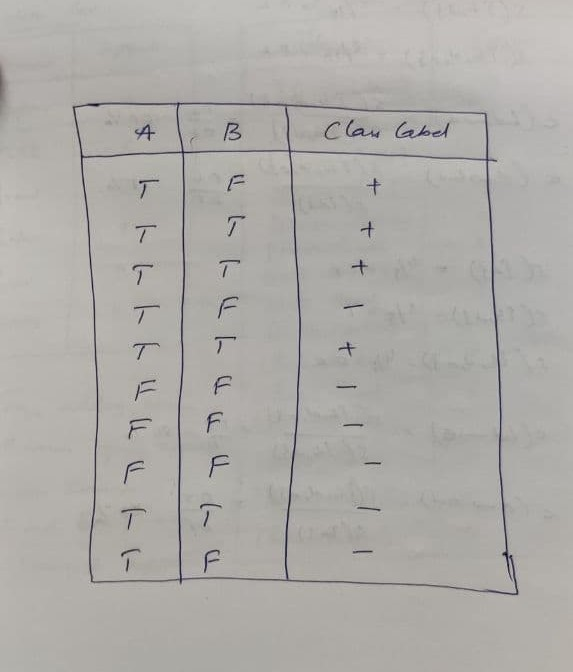 A B Class Label
T F +
T T +
T T +
T F -
T T +
F F -
F F -
F F -
T T -
T F -